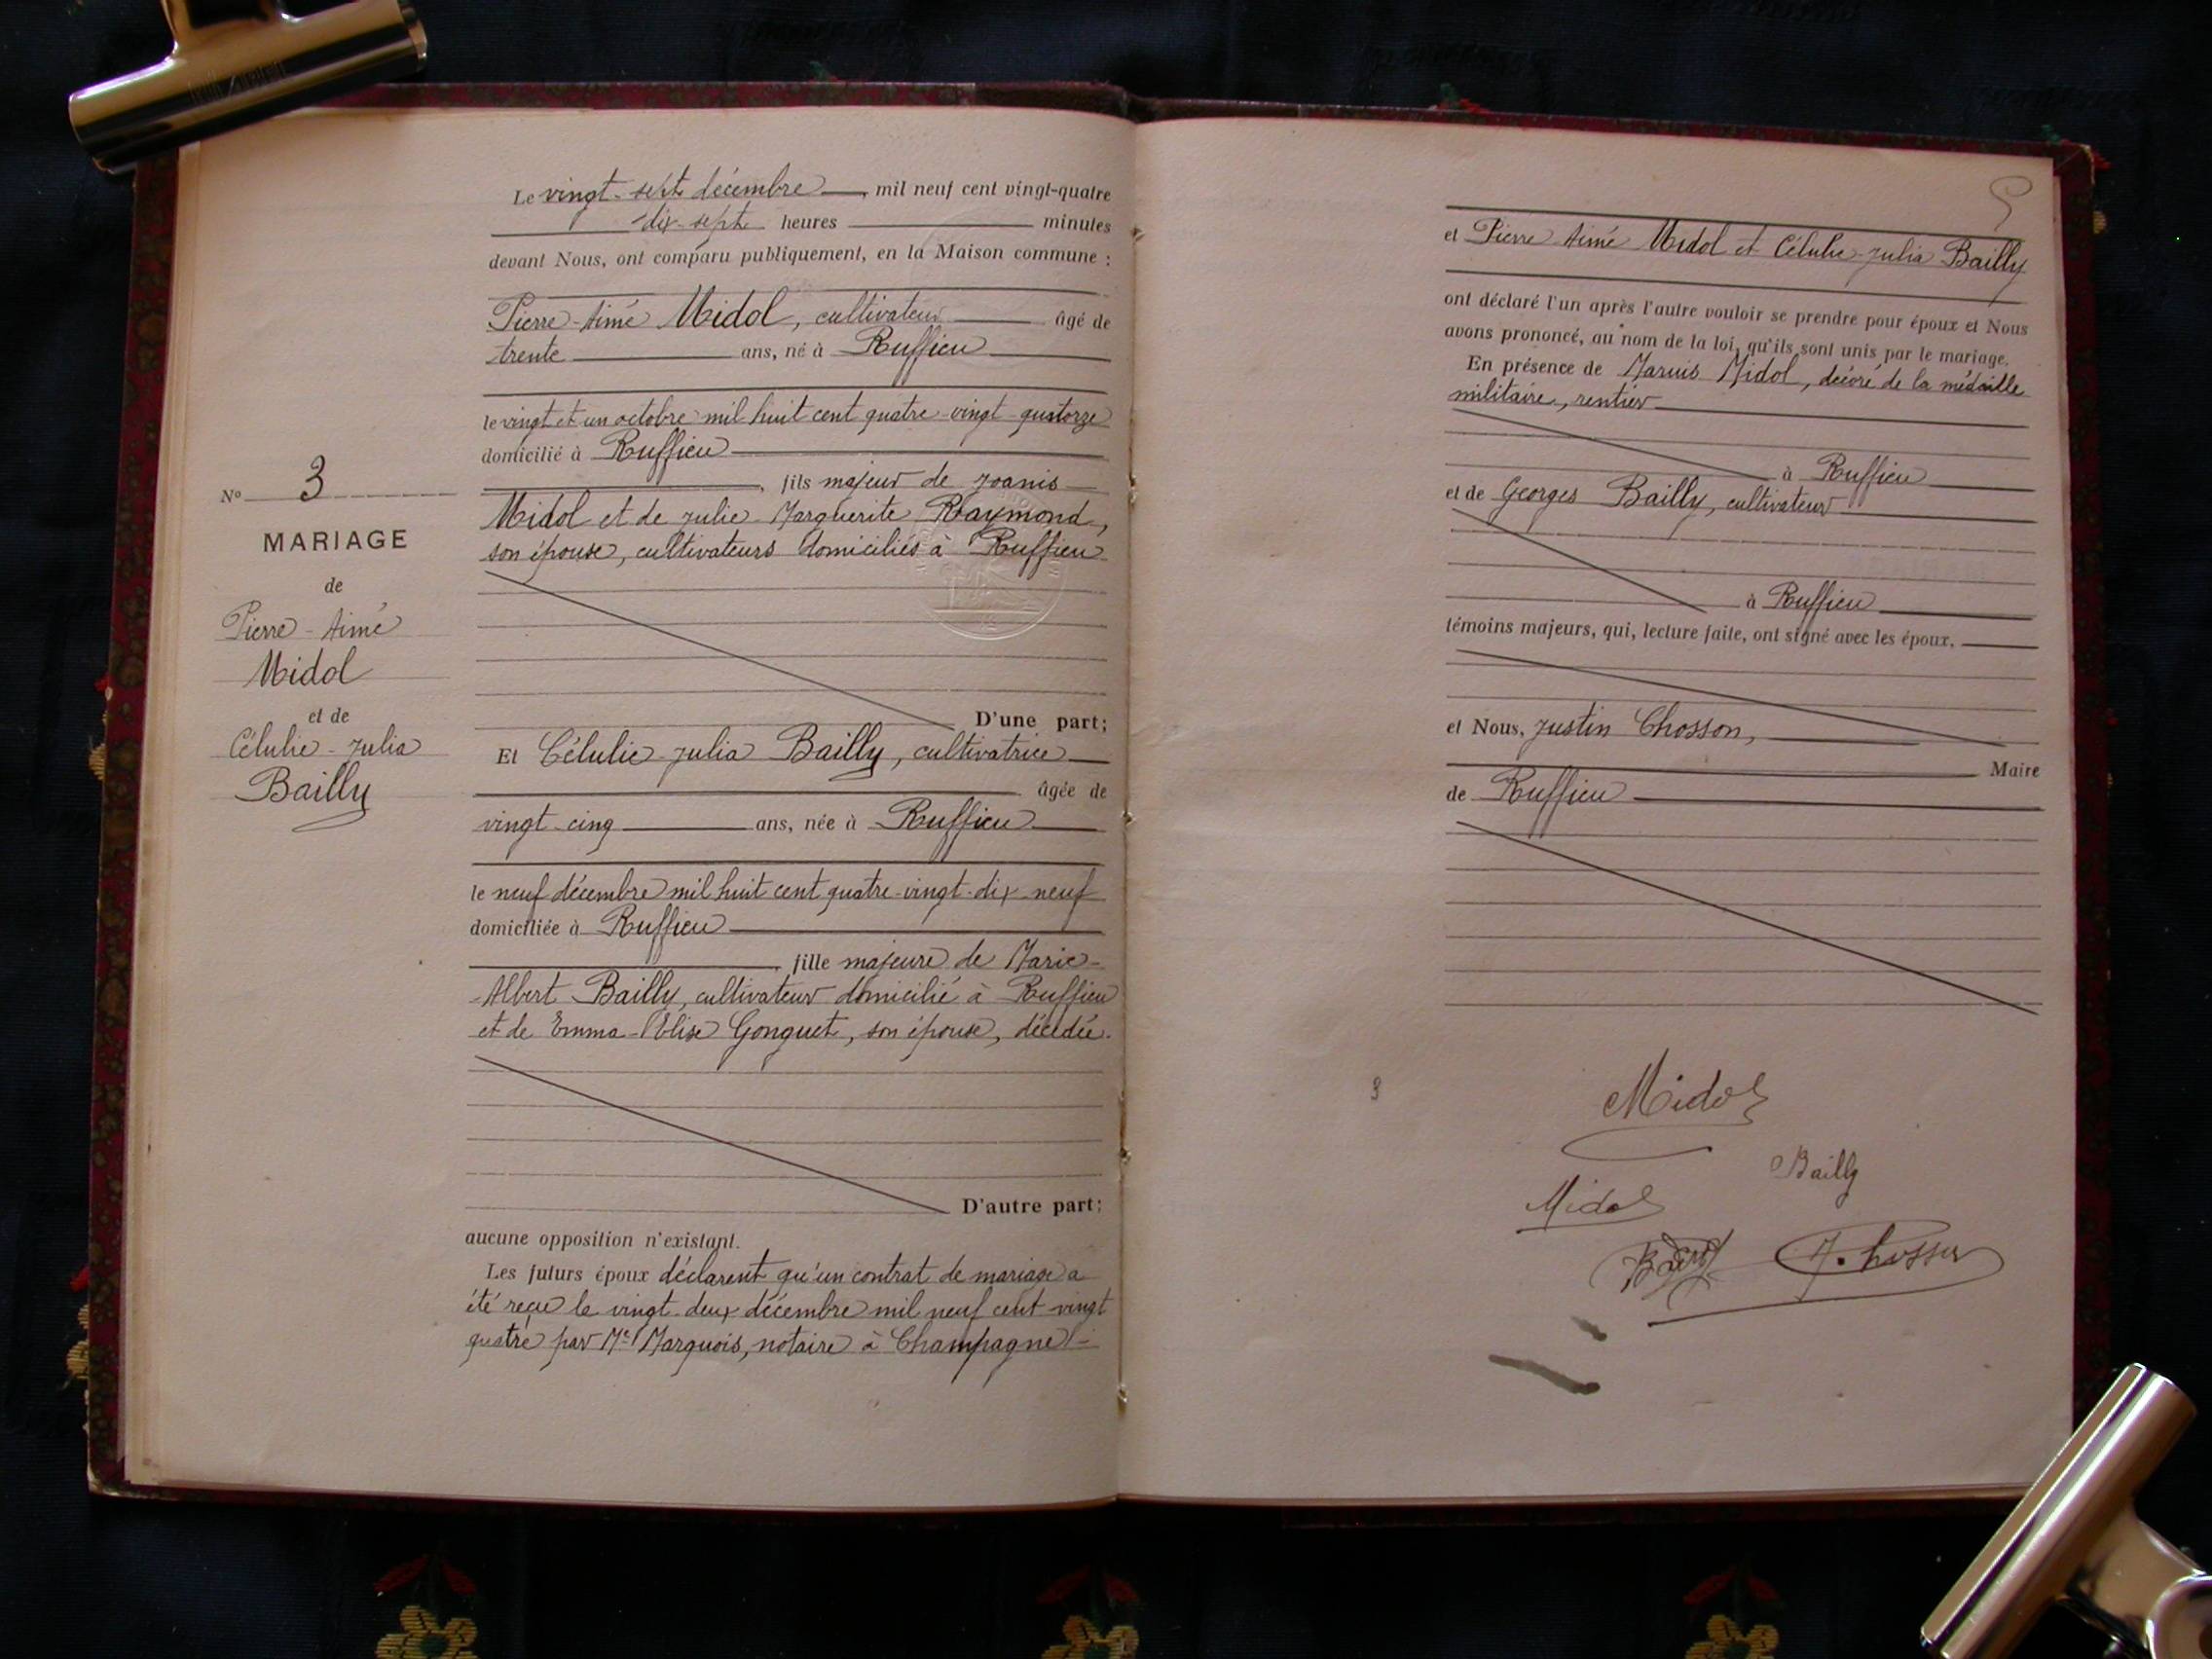 Le vingt-sept décembre, mil neuf cent vingt-quatre
dix-sept heures minutes
devant Nous, ont comparu publiquement, en la Maison commune :
Pierre-Aimé Midol, cultivateur âgé de
trente ans, né à Ruffieu
le vingt et un octobre mil huit cent quatre-vingt-quatorze
domicilié à Ruffieu
, fils majeur de Joanis
Midol et de Julie Marguerite Raymond,
son épouse, cultivateurs domiciliés à Ruffieu
D'une part;
N° 3
MARIAGE
de
Pierre-Aimé
Midol
et de
Célulie-Julia
Bailly
Et Célulie-Julia Bailly, cultivatrice
âgée de
vingt-cinq ans, née à Ruffieu
le neuf décembre mil huit cent quatre-vingt-dix-neuf
domiciliée à Ruffieu
, fille majeure de Marie-
Albert Bailly, cultivateur domicilié à Ruffieu
et de Emma-Elise Gonguet, son épouse, décédée.
D'autre part;
aucune opposition n'existant.
Les futurs époux déclarent qu'un contrat de mariage a
été reçu le vingt-deux décembre mil neuf cent vingt
quatre par Me Marquois, notaire à Champagne
et Pierre Aimé Midol et Célulie-Julia Bailly
ont déclaré l'un après l'autre vouloir se prendre pour époux et Nous
avons prononcé, au nom de la loi, qu'ils sont unis par le mariage.
En présence de Marius Midol, décoré de la médaille
militaire, rentier
à Ruffieu
et de Georges Bailly, cultivateur
à Ruffieu
témoins majeurs, qui, lecture faite, ont signé avec les époux,
et Nous, Justin Chosson,
Maire
de Ruffieu
Midol
Bailly
Midol
J. Chosson